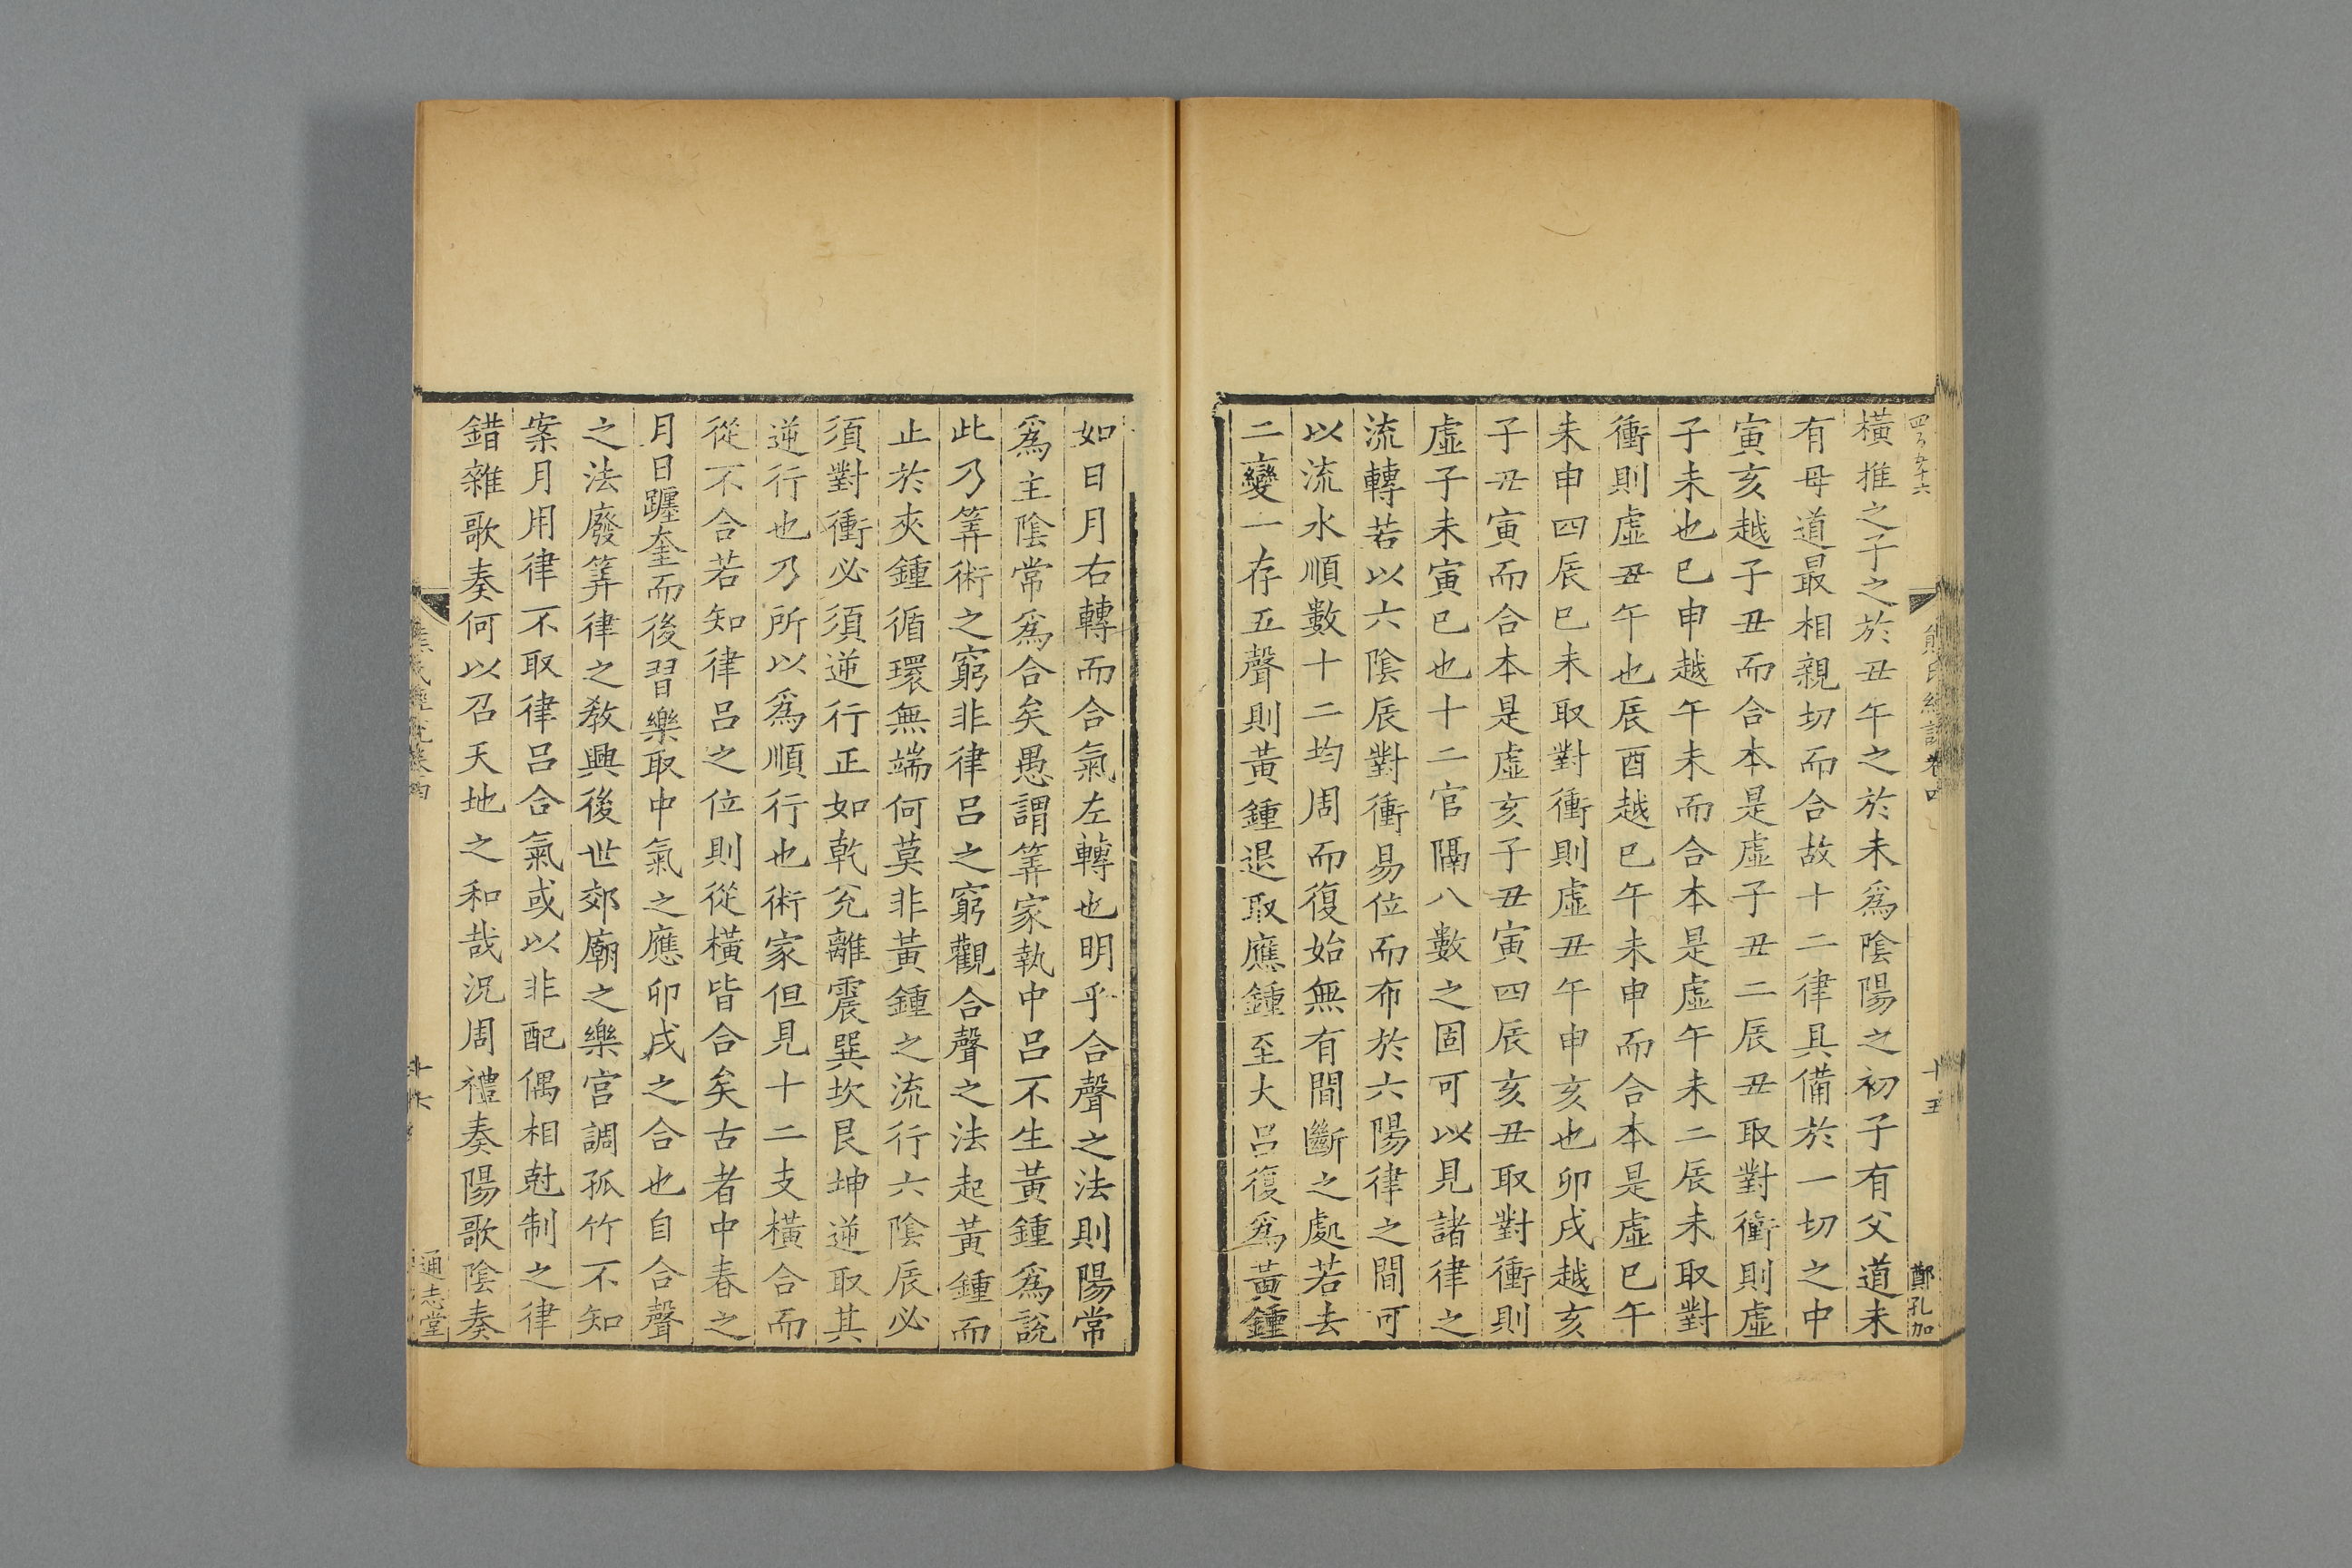 橫推之子之於丑午之於未爲陰陽之初子有父道未
有母道最相親切而合故十二律具備於一切之中
寅亥越子丑而合本是虛子丑二辰丑取對衝則虛
子未也巳申越午未而合本是虛午未二辰未取對
衝則虛丑午也辰酉越巳午未申而合本是虛巳午
未申四辰巳未取對衝則虛丑午申亥也卯戌越亥
子丑寅而合本是虛亥子丑寅四辰亥丑取對衝則
虛子未寅巳也十二官隔八數之固可以見諸律之
流轉若以六陰辰對衝易位而布於六陽律之間可
以流水順數十二均周而復始無有間斷之處若去
二變一存五聲則黃鍾退取應鍾至大呂復爲黃鍾
鄭孔加
十五
如日月右轉而合氣左轉也明乎合聲之法則陽常
爲主陰常爲合矣愚謂筭家執中呂不生黃鍾爲說
此乃筭術之窮非律呂之窮觀合聲之法起黃鍾而
止於夾鍾循環無端何莫非黃鍾之流行六陰辰必
須對衝必須逆行正如乾兊離震巽坎艮坤逆取其
逆行也乃所以爲順行也術家但見十二支橫合而
從不合若知律呂之位則從橫皆合矣古者中春之
月日躔奎而後習樂取中氣之應卯戌之合也自合聲
之法廢筭律之教興後世郊廟之樂宮調孤竹不知
案月用律不取律呂合氣或以非配偶相尅制之律
錯雜歌奏何以召天地之和哉況周禮奏陽歌陰奏
通志堂